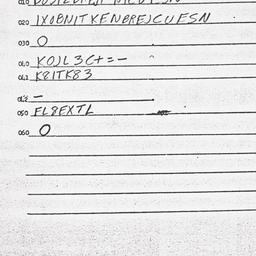 020 IXOBNITKENBREJCUESN
030 O
040 KOJL3C+=-
041 K8ITK83
042 -
050 FL8FXTL
060 O